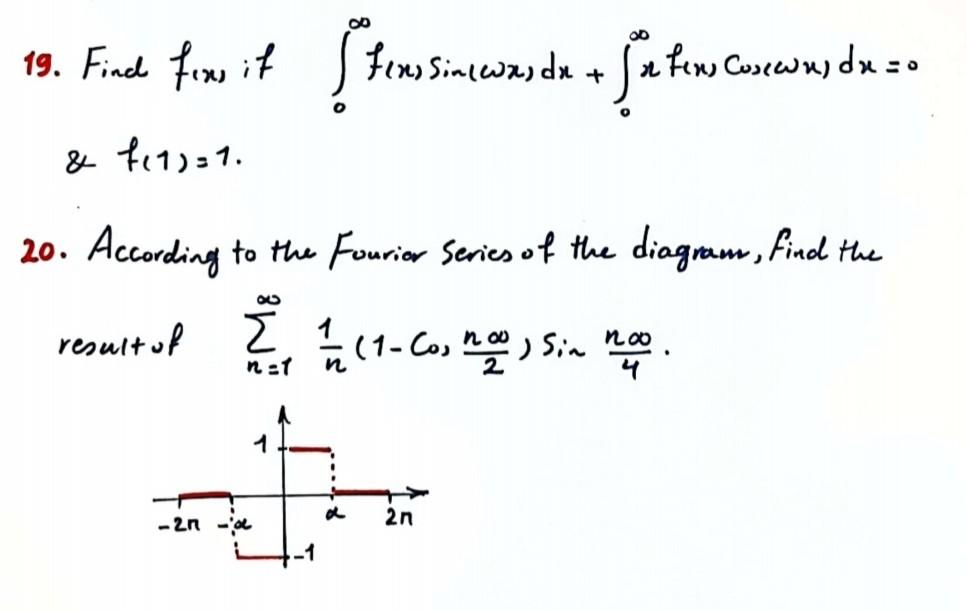 19. Find f(x) if ∫₀^∞ f(x) Sin(ωx) dx + ∫₀^∞ x f(x) Cos(ωx) dx = 0
& f(1) = 1.
20. According to the Fourier Series of the diagram, find the
result of ∑_{n=1}^∞ 1/n (1 - Cos n∞/2) Sin n∞/4.
1
-2π -α α 2π
-1